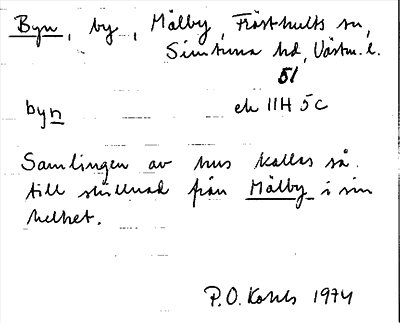 Byn, by, Mälby, Frösthults sn,
Simtuna hd, Västm. l.
51
byn ek 11H 5c
Samlingen av hus kallas så
till skillnad från Mälby i sin
helhet.
P.O. Kohls 1974